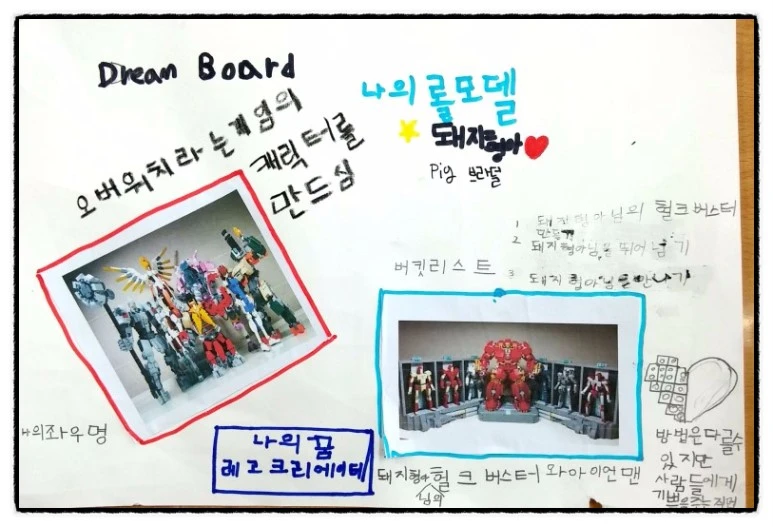 Dream Board
나의 롤모델
돼지형아
Pig 브라덜
오버워치라는게임의
캐릭터를
만드심
버킷리스트
1 돼지형아님의 헐크버스터
만들기
2 돼지형아님을 뛰어넘기
3 돼지형아님을만나기
나의좌우명
나의 꿈
레고크리에이터
돼지형아 헐크버스터와아이언맨
님의
방법은다를수
있지만
사람들에게
기쁨을주는직업